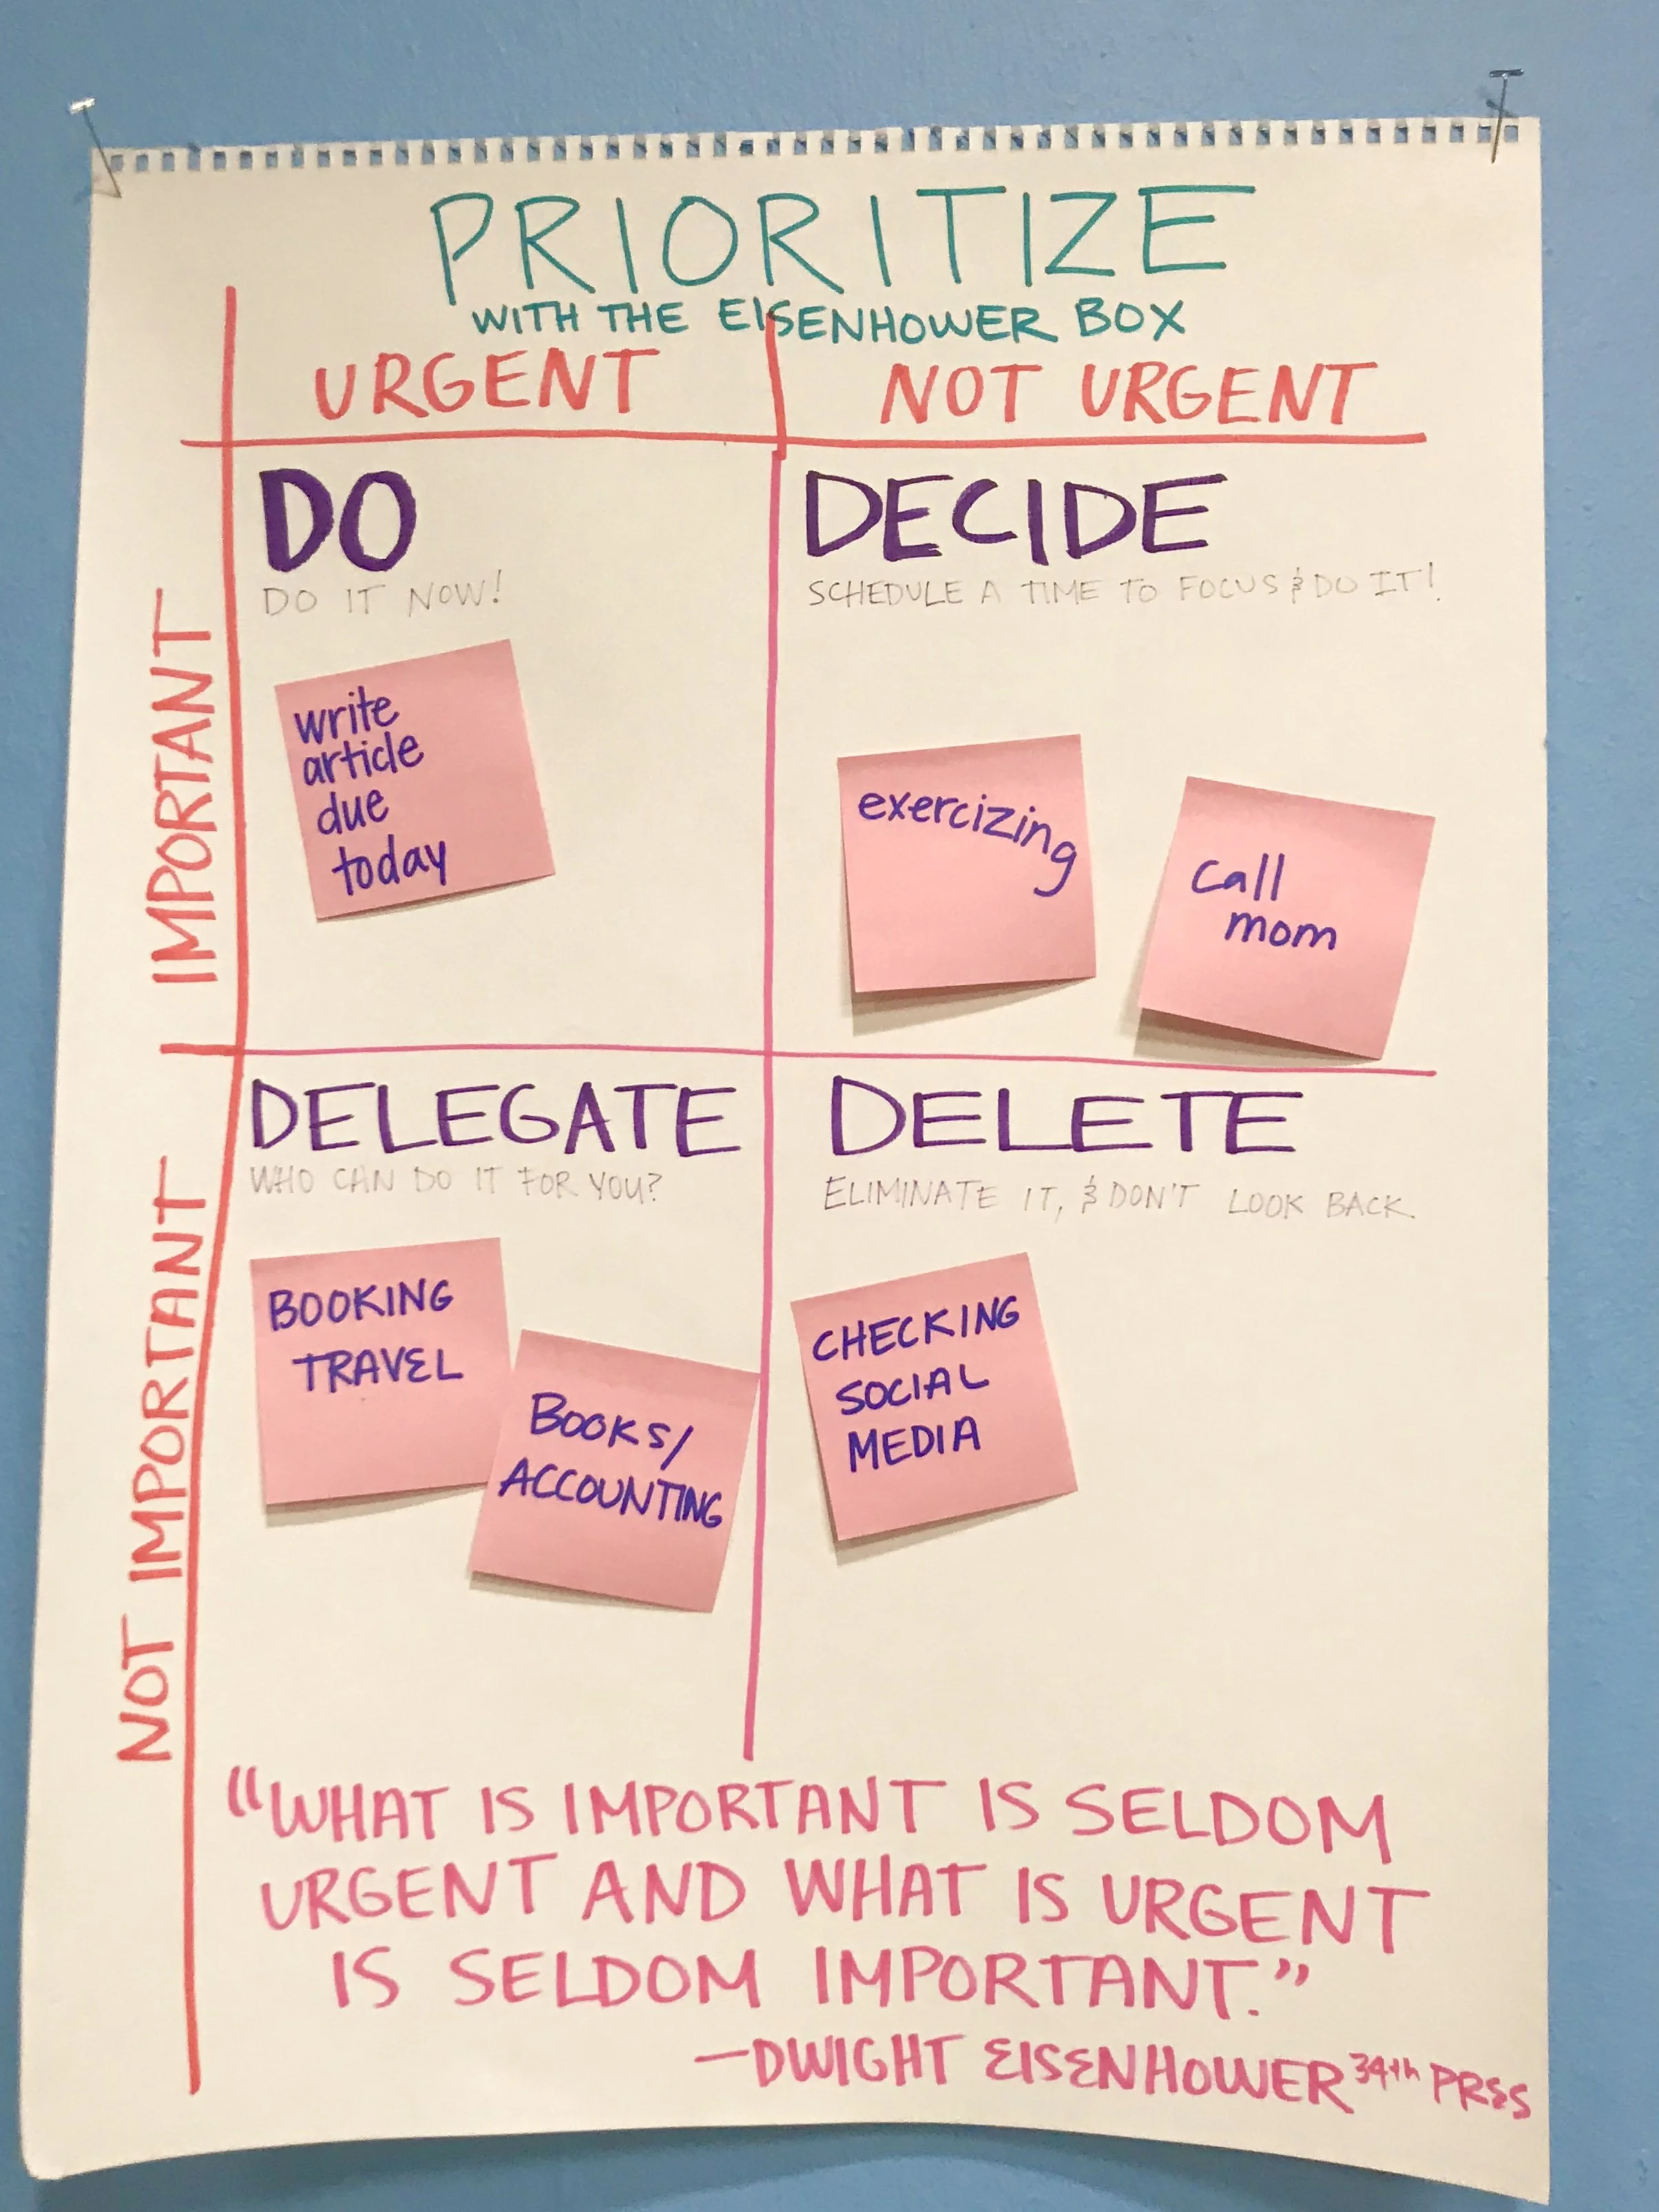 PRIORITIZE
WITH THE EISENHOWER BOX
URGENT
NOT URGENT
IMPORTANT
DO
DO IT NOW!
write
article
due
today
DECIDE
SCHEDULE A TIME TO FOCUS & DO IT!
exercizing
call
mom
NOT IMPORTANT
DELEGATE
WHO CAN DO IT FOR YOU?
BOOKING
TRAVEL
BOOKS/
ACCOUNTING
DELETE
ELIMINATE IT, & DON'T LOOK BACK.
CHECKING
SOCIAL
MEDIA
"WHAT IS IMPORTANT IS SELDOM
URGENT AND WHAT IS URGENT
IS SELDOM IMPORTANT."
—DWIGHT EISENHOWER 34th PRES